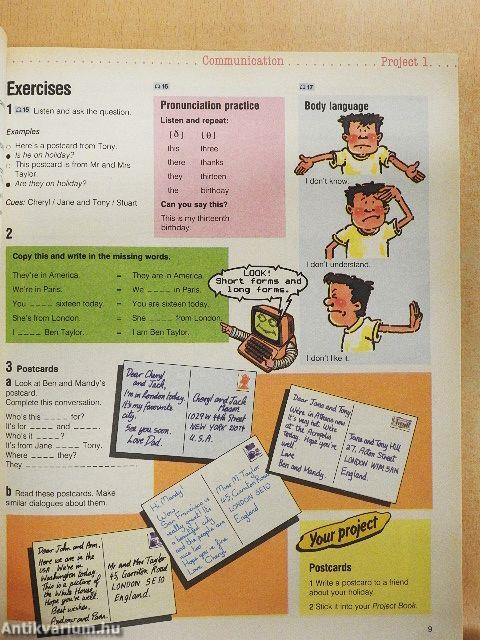 Communication Project 1.
Exercises
1 15 Listen and ask the question.
Examples
Here's a postcard from Tony.
Is he on holiday?
This postcard is from Mr and Mrs
Taylor.
Are they on holiday?
Cues: Cheryl / Jane and Tony / Stuart
16
Pronunciation practice
Listen and repeat:
[ð] [θ]
this three
there thanks
they thirteen
the birthday
Can you say this?
This is my thirteenth
birthday.
17
Body language
I don't know.
I don't understand.
I don't like it.
2
Copy this and write in the missing words.
They're in America. = They are in America.
We're in Paris. = We ____ in Paris.
You ____ sixteen today. = You are sixteen today.
She's from London. = She ____ from London.
I ____ Ben Taylor. = I am Ben Taylor.
LOOK!
Short forms and
long forms.
3 Postcards
a Look at Ben and Mandy's
postcard.
Complete this conversation.
Who's this ____ for?
It's for ____ and ____.
Who's it ____?
It's from Jane ____ Tony.
Where ____ they?
They ____
b Read these postcards. Make
similar dialogues about them.
Dear Cheryl
and Jack,
I'm in London today.
It's my favourite
city.
See you soon.
Love Dad.
Cheryl and Jack
1029 W 44th Street
NEW YORK
U.S.A.
Dear Jane and Tony
We're in Athens now
It's very hot. We're
at the Acropolis
today. Hope you're
well.
Love
Ben and Mandy.
Jane and Tony Hill
27, Street
LONDON
England.
Hi, Mandy
Wow!
San Francisco is
really great! It's
a beautiful city
and the people are
nice too.
Hope you're fine
Love, Cheryl
Miss M. Taylor
45, Garriton Road
LONDON SE10
England
Dear John and Ann,
Here we are in the
USA. We're in
Washington today.
This is a picture of
the White House.
Hope you're well.
Best wishes,
Mr and Mrs Taylor
45, Garriton Road
LONDON SE10
England.
Your project
Postcards
1 Write a postcard to a friend
about your holiday.
2 Stick it into your Project Book.
9
Antikvarium.hu